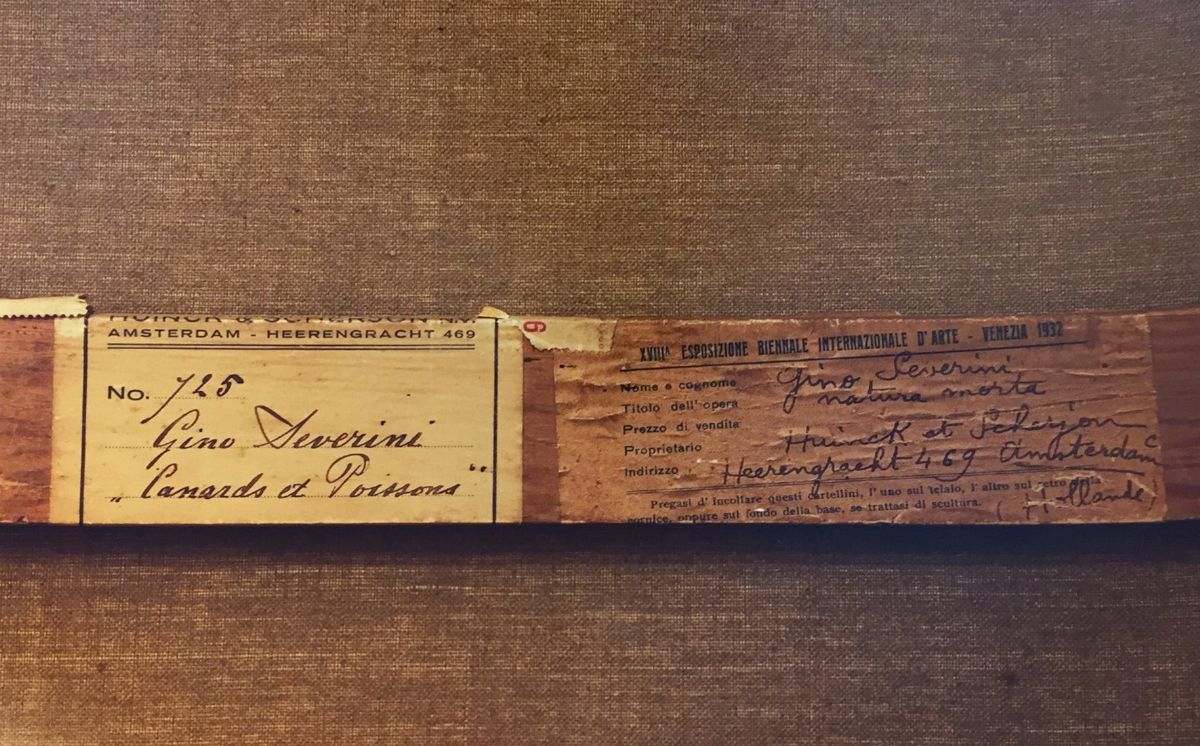 HUINCK & SCHERJON N.V.
AMSTERDAM - HEERENGRACHT 469
No. 725
Gino Severini
„Canards et Poissons“
6
XVIIIᴬ ESPOSIZIONE BIENNALE INTERNAZIONALE D'ARTE - VENEZIA 1932
Nome e cognome Gino Severini
Titolo dell'opera natura morta
Prezzo di vendita
Proprietario Huinck et Scherjon
Indirizzo Heerengracht 469 Amsterdam
(Hollande)
Pregasi d'incollare questi cartellini, l'uno sul telaio, l'altro sul retro della
cornice, oppure sul fondo della base, se trattasi di scultura.